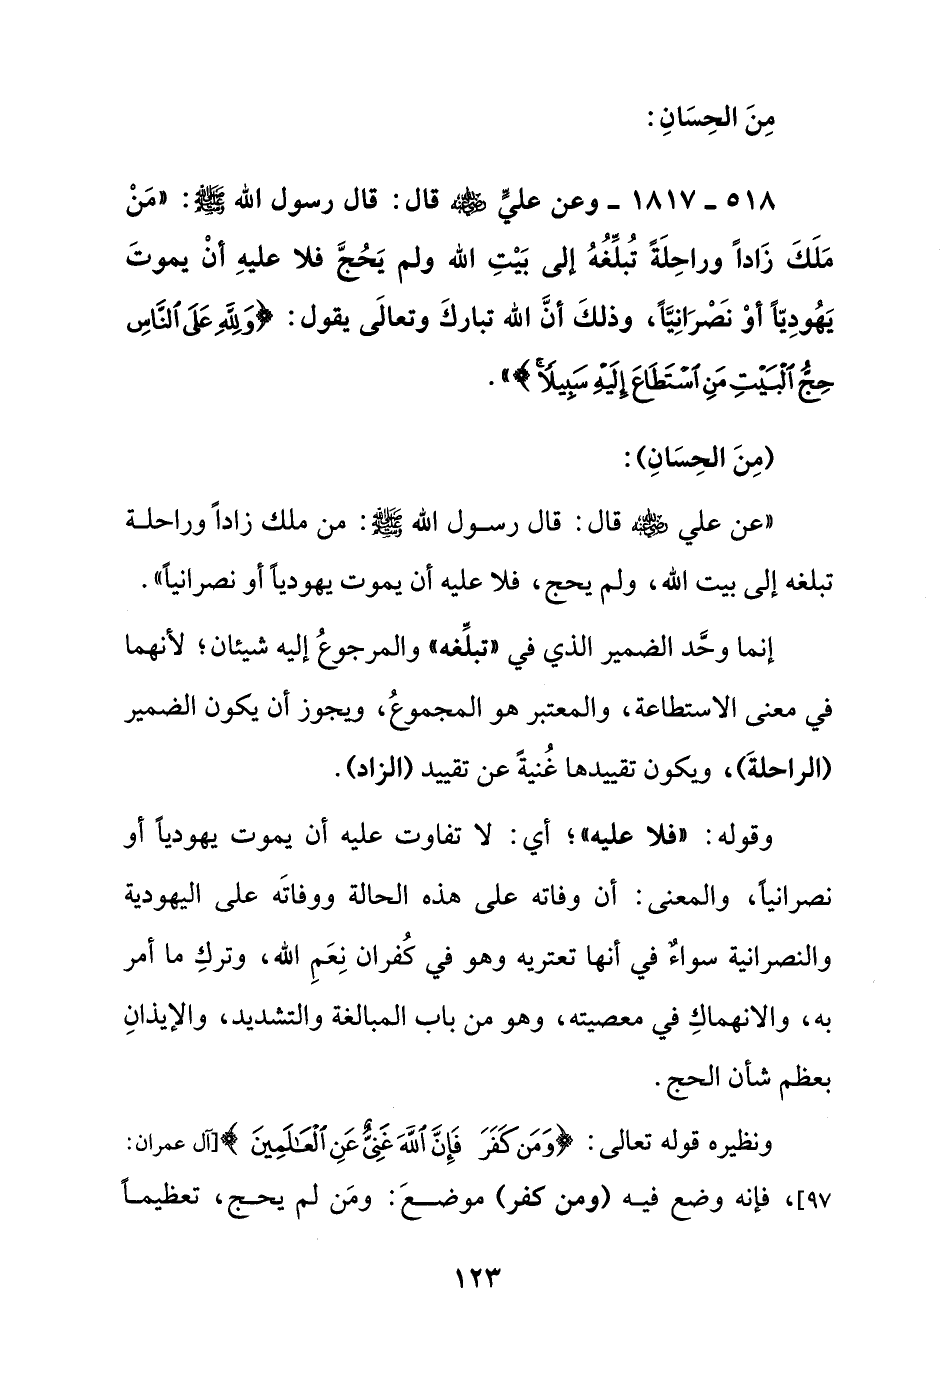 مِنَ الحِسَانِ:
٥١٨ ـ ١٨١٧ ـ وعن عليٍّ رضي الله عنه قال: قال رسول الله ﷺ: «مَنْ
مَلَكَ زَاداً وراحِلَةً تُبلِّغُهُ إلى بَيْتِ الله ولم يَحُجَّ فلا عليهِ أنْ يموتَ
يَهُودِيّاً أوْ نَصْرَانِيَّاً، وذلكَ أنَّ الله تباركَ وتعالَى يقول: ﴿وَلِلَّهِ عَلَى ٱلنَّاسِ
حِجُّ ٱلْبَيْتِ مَنِ ٱسْتَطَاعَ إِلَيْهِ سَبِيلًاۚ﴾».
(مِنَ الحِسَانِ):
«عن علي رضي الله عنه قال: قال رسول الله ﷺ: من ملك زاداً وراحلة
تبلغه إلى بيت الله، ولم يحج، فلا عليه أن يموت يهودياً أو نصرانياً».
إنما وحَّد الضمير الذي في «تبلِّغه» والمرجوعُ إليه شيئان؛ لأنهما
في معنى الاستطاعة، والمعتبر هو المجموعُ، ويجوز أن يكون الضمير
(الراحلةَ)، ويكون تقييدها غُنيةً عن تقييد (الزاد).
وقوله: «فلا عليه»؛ أي: لا تفاوت عليه أن يموت يهودياً أو
نصرانياً، والمعنى: أن وفاته على هذه الحالة ووفاتَه على اليهودية
والنصرانية سواءٌ في أنها تعتريه وهو في كُفران نِعَمِ الله، وتركِ ما أمر
به، والانهماكِ في معصيته، وهو من باب المبالغة والتشديد، والإيذانِ
بعظم شأن الحج.
ونظيره قوله تعالى: ﴿وَمَن كَفَرَ فَإِنَّ ٱللَّهَ غَنِىٌّ عَنِ ٱلْعَـٰلَمِينَ﴾[آل عمران:
٩٧]، فإنه وضع فيه (ومن كفر) موضعَ: ومَن لم يحج، تعظيماً
١٢٣